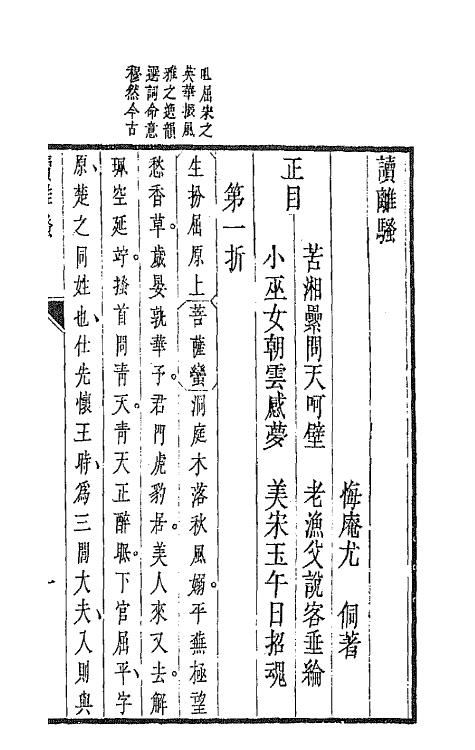 咀屈宋之
英華振風
雅之逸韻
選詞命意
穆然今古
讀離騷
悔庵尤　侗著
正目
苦湘纍問天呵壁　老漁父說客垂綸
小巫女朝雲感夢　美宋玉午日招魂
第一折
生扮屈原上菩薩蠻洞庭木落秋風嫋。平蕪極望
愁香草。歲晏孰華予。君門虎豹居。美人來又去。解
珮空延竚。搔首問青天。青天正醉眠。下官屈平、字
原、楚之同姓也、仕先懷王時、爲三閭大夫、入則與
讀離騷
一